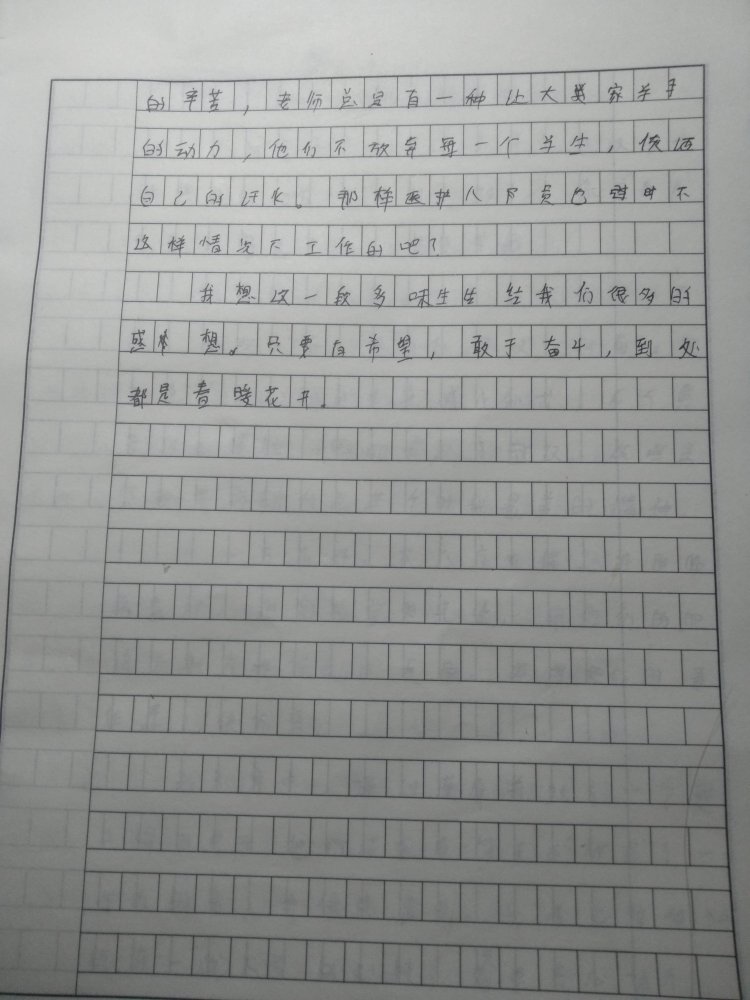 的辛苦，老师总是有一种让大家学习
的动力，他们不放弃每一个学生，倾洒
自己的汗水。那样医护人员也时不
这样情况下工作的吧？
我想这一段多味生生给我们很多的
感想。只要有希望，敢于奋斗，到处
都是春暖花开。